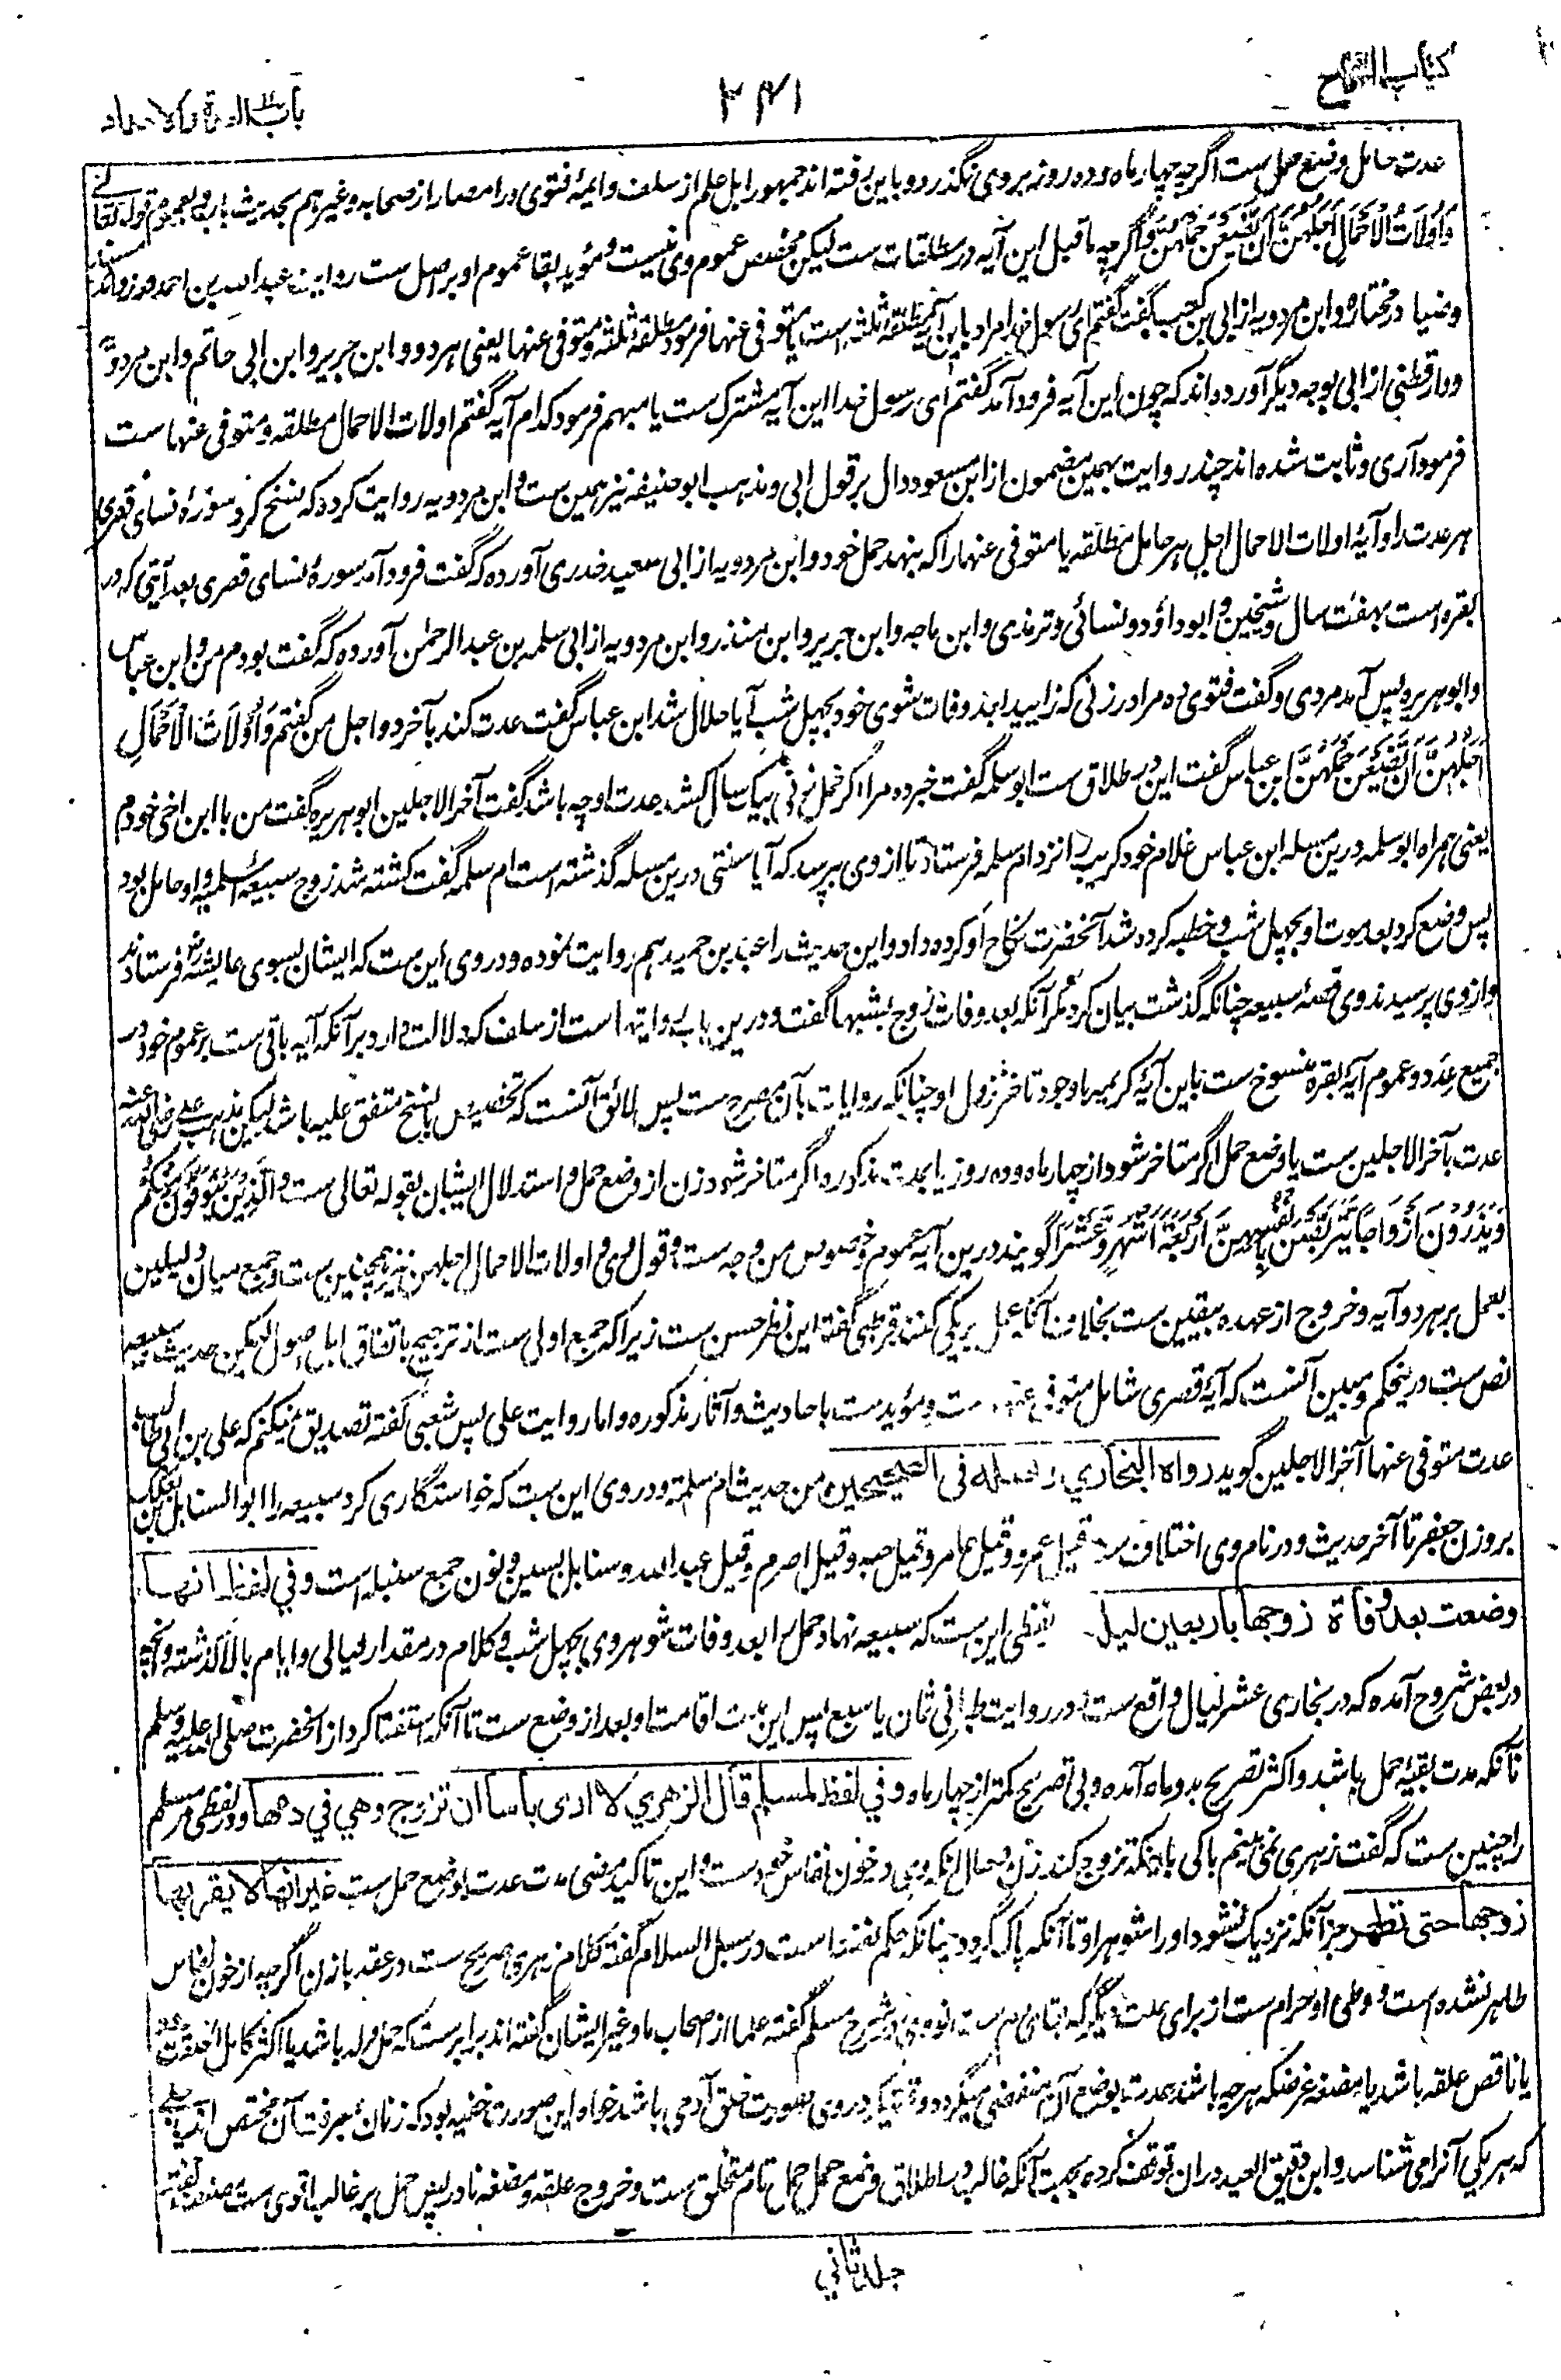 كتاب النكاح
٢٤١
باب العدة والاحداد
عدت حامل وضع حمل ست اگرچه چهار ماه و ده روز بروی نگذرد و باین رفته اند جمهور اهل علم از سلف و ایمهٔ فتوی در امصار از صحابه و غیرهم بحدیث باب و بعموم قوله تعالی
وَأُولَاتُ الْأَحْمَالِ أَجَلُهُنَّ أَنْ يَضَعْنَ حَمْلَهُنَّ و اگرچه ماقبل این آیه در مطلقات ست لیکن مخصص عموم وی نیست و مؤید بقا عموم او بر اصل ست روایت عبدالله بن احمد در زوائد مسند
و ضیا در مختاره و ابن مردویه از ابی بن کعب گفت گفتم ای رسول خدا مراد باین آیه مطلقه ثلثه است یا متوفی عنها فرمود مطلقه ثلثه و متوفی عنها یعنی هر دو و ابن جریر و ابن ابی حاتم و ابن مردویه
و دارقطنی از ابی بوجه دیگر آورده اند که چون این آیه فرود آمد گفتم ای رسول خدا این آیه مشترک ست یا مبهم فرمود کدام آیه گفتم اولات الاحمال مطلقه و متوفی عنها ست
فرمود آری و ثابت شده اند چند روایت بهمین مضمون از ابن مسعود دال بر قول ابی و مذهب ابو حنیفه نیز همین ست و ابن مردویه روایت کرده که نسخ کرد سورهٔ نسای قصری
هر عدت را و آیهٔ اولات الاحمال اجل هر حامل مطلقه یا متوفی عنها را که بنهد حمل خود و ابن مردویه از ابی سعید خدری آورده که گفت فرود آمد سورهٔ نسای قصری بعد آیتی که در
بقره است بهفت سال و شیخین و ابو داؤد و نسائی و ترمذی و ابن ماجه و ابن جریر و ابن منذر و ابن مردویه از ابی سلمه بن عبدالرحمن آورده که گفت بودم من و ابن عباس
و ابو هریره پس آمد مردی و گفت فتوی ده مرا در زنی که زایید بعد وفات شوی خود بچهل شب آیا حلال شد ابن عباس گفت عدت کند بآخر دو اجل من گفتم وَأُولَاتُ الْأَحْمَالِ
أَجَلُهُنَّ أَنْ يَضَعْنَ حَمْلَهُنَّ ابن عباس گفت این در طلاق ست ابو سلمه گفت خبر ده مرا اگر حمل زنی بیک سال کشد عدت او چه باشد گفت آخر الاجلین ابو هریره گفت من با ابن اخی خودم
یعنی همراه ابو سلمه درین مسئله ابن عباس غلام خود کریب را نزد ام سلمه فرستاد تا از وی بپرسد که آیا سنتی درین مسئله گذشته است ام سلمه گفت کشته شد زوج سبیعهٔ اسلمیه و او حامل بود
پس وضع کرد بعد موت او بچهل شب و خطبه کرده شد آنحضرت نکاح او کرده داد و این حدیث را عبد بن حمید هم روایت نموده و در وی این ست که ایشان بسوی عایشه فرستادند
و از وی پرسیدند وی قصهٔ سبیعه چنانکه گذشت بیان کرد مگر آنکه بعد وفات زوج بشبها گفت و درین باب روایتها است از سلف که دلالت دارد بر آنکه آیه باقی ست بر عموم خود در
جمیع عدد و عموم آیهٔ بقره منسوخ ست باین آیهٔ کریمه با وجود تاخر نزول او چنانکه روایات بآن مصرح ست پس لائق آنست که تخصیص یا نسخ متفق علیه باشد لیکن مذهب علی رضی الله عنه
عدت بآخر الاجلین ست یا وضع حمل اگر متاخر شود از چهار ماه و ده روز یا بمدت مذکوره اگر متاخر شود زن از وضع حمل و استدلال ایشان بقوله تعالی ست وَالَّذِينَ يُتَوَفَّوْنَ مِنْكُمْ
وَيَذَرُونَ أَزْوَاجًا يَتَرَبَّصْنَ بِأَنْفُسِهِنَّ أَرْبَعَةَ أَشْهُرٍ وَعَشْرًا گویند درین آیه عموم و خصوص من وجه ست و قول وی و اولات الاحمال اجلهن نیز همچنین ست و جمع میان دلیلین
بعمل بر هر دو آیه و خروج از عهده بیقین ست بخلاف آنکه عمل بر یکی کنند قرطبی گفته این نظر حسن ست زیرا که جمع اولی ست از ترجیح باتفاق اهل اصول لیکن حدیث سبیعه
نص ست درین حکم و مبین آنست که آیهٔ قصری شامل متوفی عنها ست و مؤید ست باحادیث و آثار مذکوره و اما روایت علی پس شعبی گفته تصدیق نمیکنم که علی بن ابی طالب
عدت متوفی عنها آخر الاجلین گوید رواه البخاري واصله في الصحيحين من حدیث ام سلمة و در وی این ست که خواستگاری کرد سبیعه را ابو السنابل بن بعکک
بروزن جعفر تا آخر حدیث و در نام وی اختلاف ست قیل عمرو و قیل عامر و قیل حبه و قیل اصرم و قیل عبدالله و سنابل بسین و نون جمع سنبله است وفي لفظ انها
وضعت بعد وفاة زوجها باربعين ليلة لفظی این ست که سبیعه نهاد حمل را بعد وفات شوهر وی بچهل شب و کلام در مقدار لیالی و ایام بالا گذشته و آنچه
در بعض شروح آمده که در بخاری عشر لیال واقع ست و در روایت طبرانی ثمان یا سبع پس این مدت اقامت او بعد از وضع ست تا آنکه استفتا کرد از آنحضرت صلی الله علیه وسلم
نه آنکه مدت بقیهٔ حمل باشد و اکثر تصریح بدو ماه آمده و بی تصریح کمتر از چهار ماه وفي لفظ لمسلم قال الزهري لا ارى باسا ان تزوج وهي في دمها و در لفظی مر مسلم
را چنین ست که گفت زهری نمی بینم باکی باینکه تزوج کند زن و حال آنکه وی در خون نفاس خود ست و این تاکید مضی مدت عدت بوضع حمل ست غير انها لا يقربها
زوجها حتى تطهر جز آنکه نزدیک نشود او را شوهر او تا آنکه پاک گردد چنانکه حکم نفسا است در سبل السلام گفته کلام زهری صریح ست در عقد باز ن اگرچه از خون نفاس
طاهر نشده است و وطی او حرام ست از برای علت دیگر که بقای دم ست نووی در شرح مسلم گفته علما از اصحاب ما و غیر ایشان گفته اند برابر ست که حمل ولد باشد یا اکثر کامل الخلقت بود
یا ناقص علقه باشد یا مضغه غرضکه هرچه باشد عدت بوضع آن منقضی میگردد وقتیکه در وی صورت خلق آدمی باشد خواه این صورت خفیه بود که زنان بمعرفت آن مختص اند یا جلی
که هر یکی آنرا می شناسد و ابن دقیق العید در آن توقف کرده بجهت آنکه غالب در اطلاق وضع حمل حمل تام متخلق ست و خروج علقه و مضغه نادر پس حمل بر غالب اقوی ست
جلد ثاني